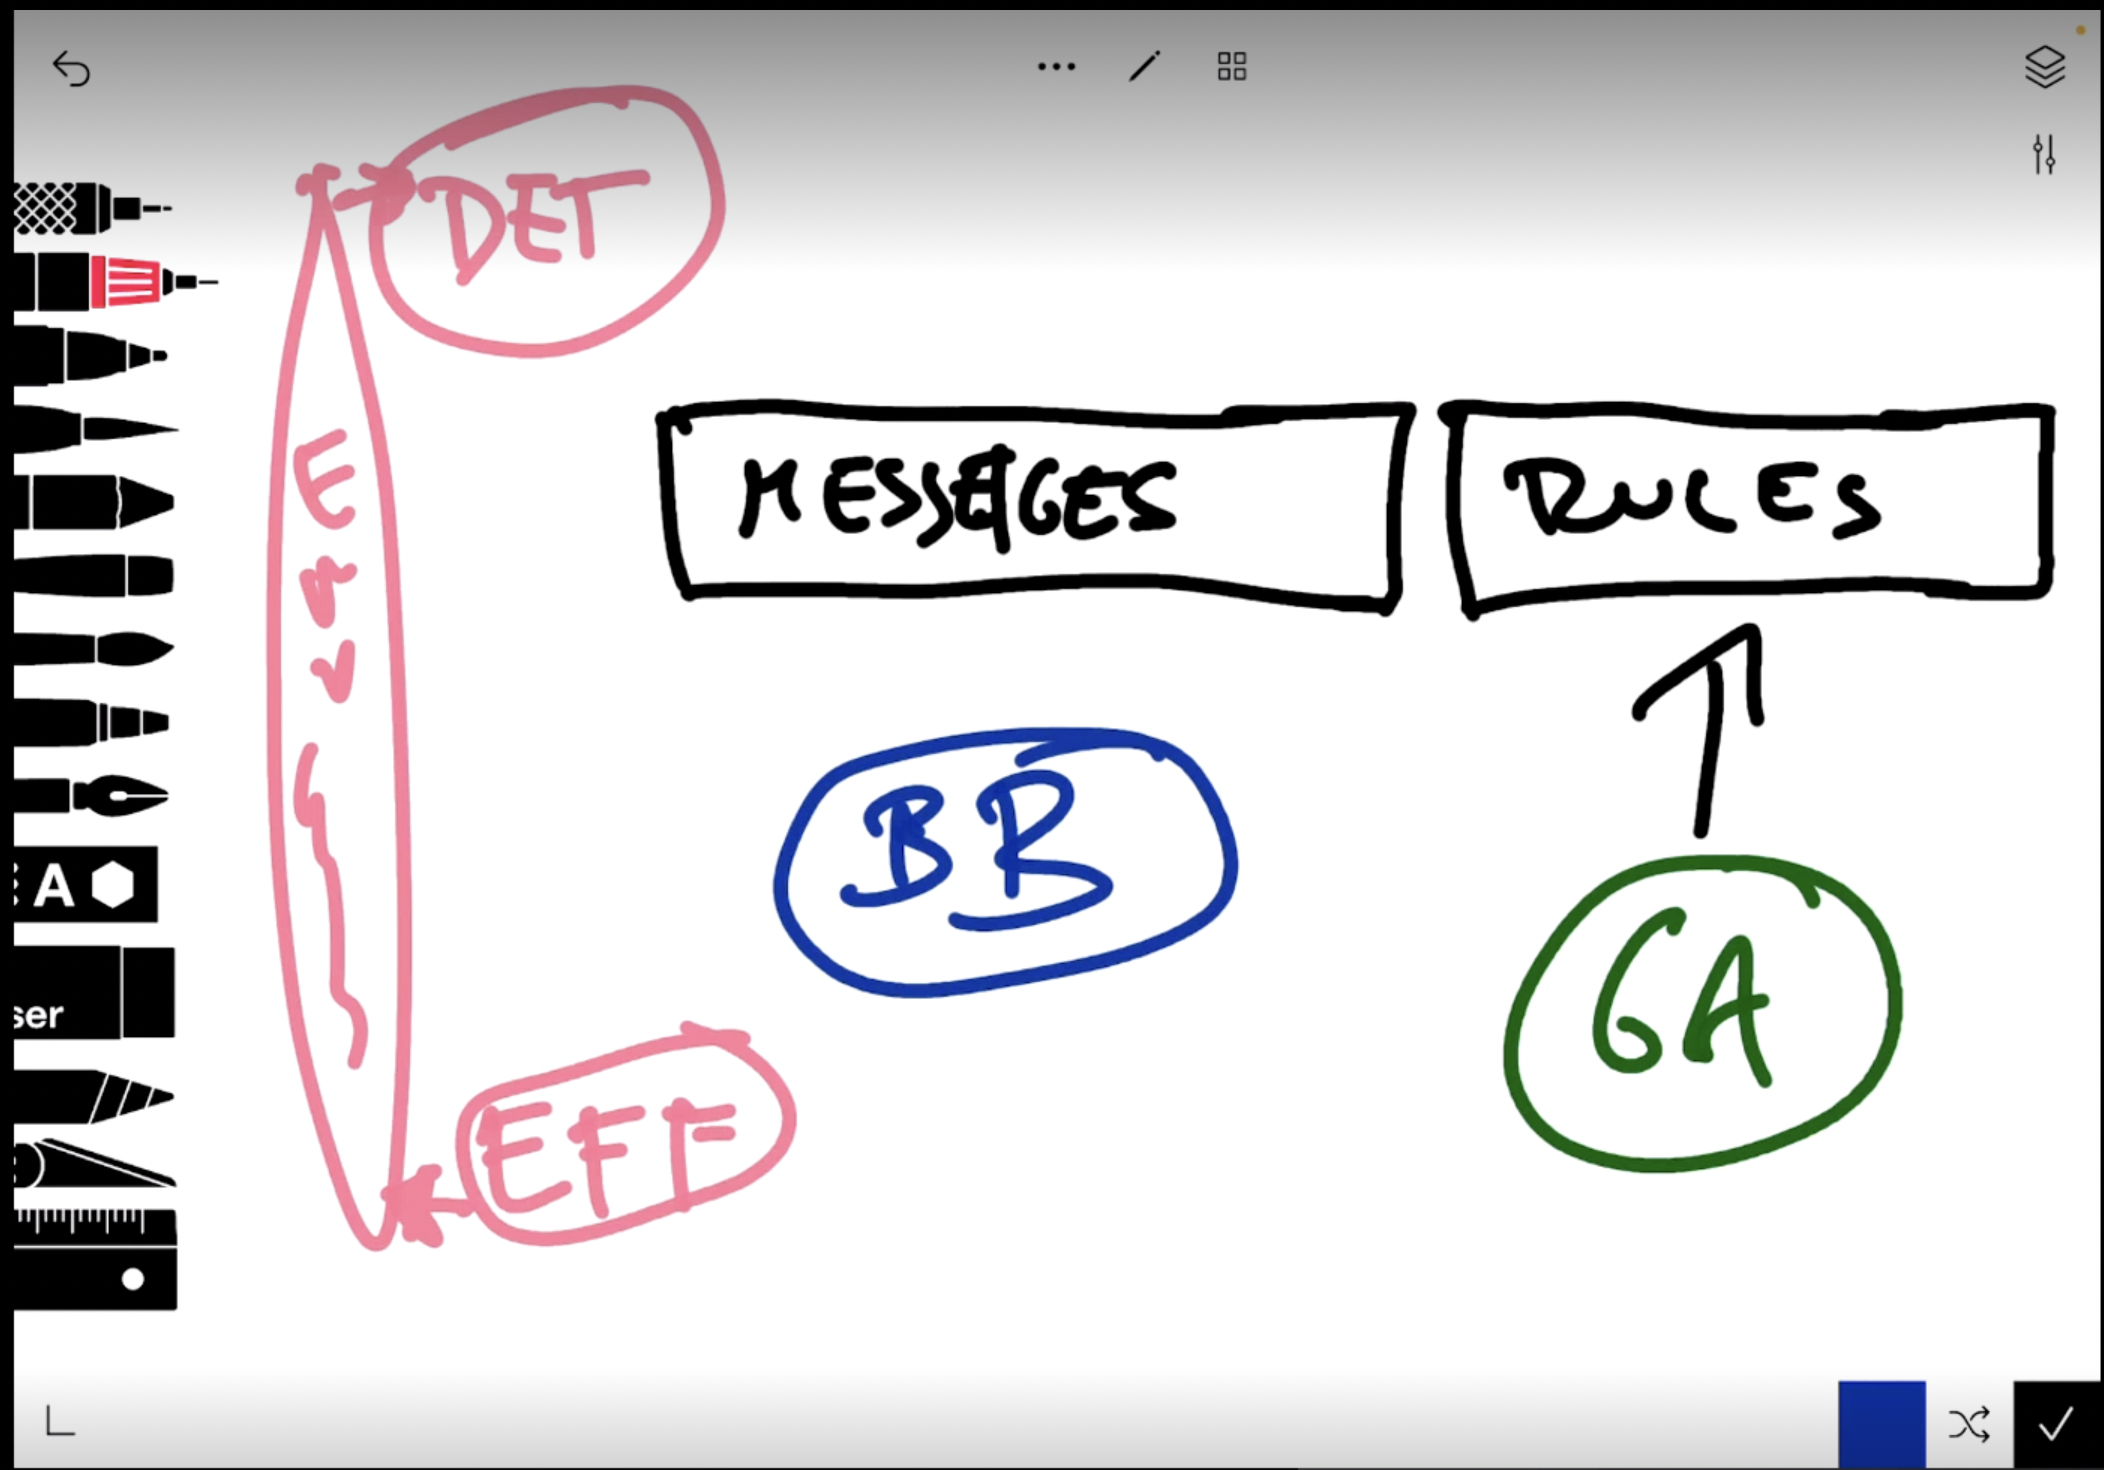 DET
MESSAGES
RULES
BB
GA
EFF
A
ser